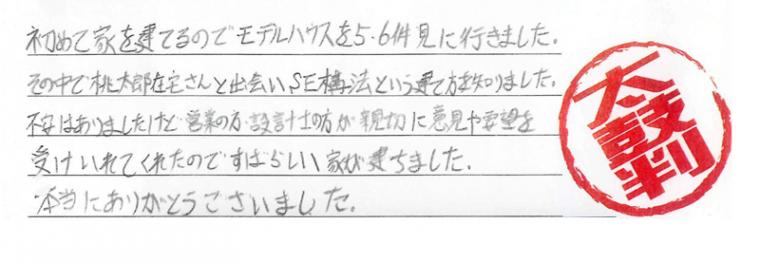 初めて家を建てるのでモデルハウスを5・6件見に行きました。
その中で桃太郎在宅さんと出会いSE構法という建て方を知りました。
不安はありましたけど営業の方・設計士の方が親切に意見や要望を
受けいれてくれたのですばらしい家が建ちました。
本当にありがとうございました。
太鼓判